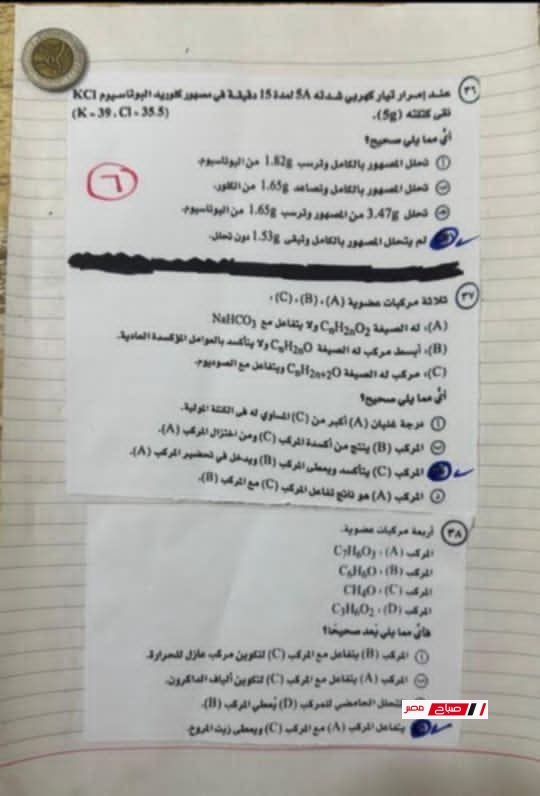 ٣٦ عند إمرار تيار كهربي شدته 5A لمدة 15 دقيقة في مصهور كلوريد البوتاسيوم KCl
نقى كتلته (5g).
(K = 39 , Cl = 35.5)
أي مما يلي صحيح؟
أ تحلل المصهور بالكامل وترسب 1.82g من البوتاسيوم.
ب تحلل المصهور بالكامل وتصاعد 1.65g من الكلور.
ج تحلل 3.47g من المصهور وترسب 1.65g من البوتاسيوم.
لم يتحلل المصهور بالكامل وتبقى 1.53g دون تحلل.
٦
٣٧ ثلاثة مركبات عضوية (A) ، (B) ، (C) ،
(A)، له الصيغة CnH2nO2 ولا يتفاعل مع NaHCO3
(B)، أبسط مركب له الصيغة CnH2nO ولا يتأكسد بالعوامل المؤكسدة العادية.
(C)، مركب له الصيغة CnH2n+2O ويتفاعل مع الصوديوم.
أي مما يلي صحيح؟
أ درجة غليان (A) أكبر من (C) المساوي له في الكتلة المولية.
ب المركب (B) ينتج من أكسدة المركب (C) ومن اختزال المركب (A).
المركب (C) يتأكسد ويعطى المركب (B) ويدخل في تحضير المركب (A).
د المركب (A) هو ناتج تفاعل المركب (C) مع المركب (B).
٣٨ أربعة مركبات عضوية.
المركب (A) ، C7H6O3
المركب (B) ، C6H6O
المركب (C) ، CH4O
المركب (D) ، C3H6O2
فأي مما يلي يُعد صحيحًا؟
أ المركب (B) يتفاعل مع المركب (C) لتكوين مركب عازل للحرارة.
ب المركب (A) يتفاعل مع المركب (C) لتكوين ألياف الداكرون.
التحلل الحامضي للمركب (D) يُعطي المركب (B).
يتفاعل المركب (A) مع المركب (C) ويعطى زيت المروخ.
صباح مصر